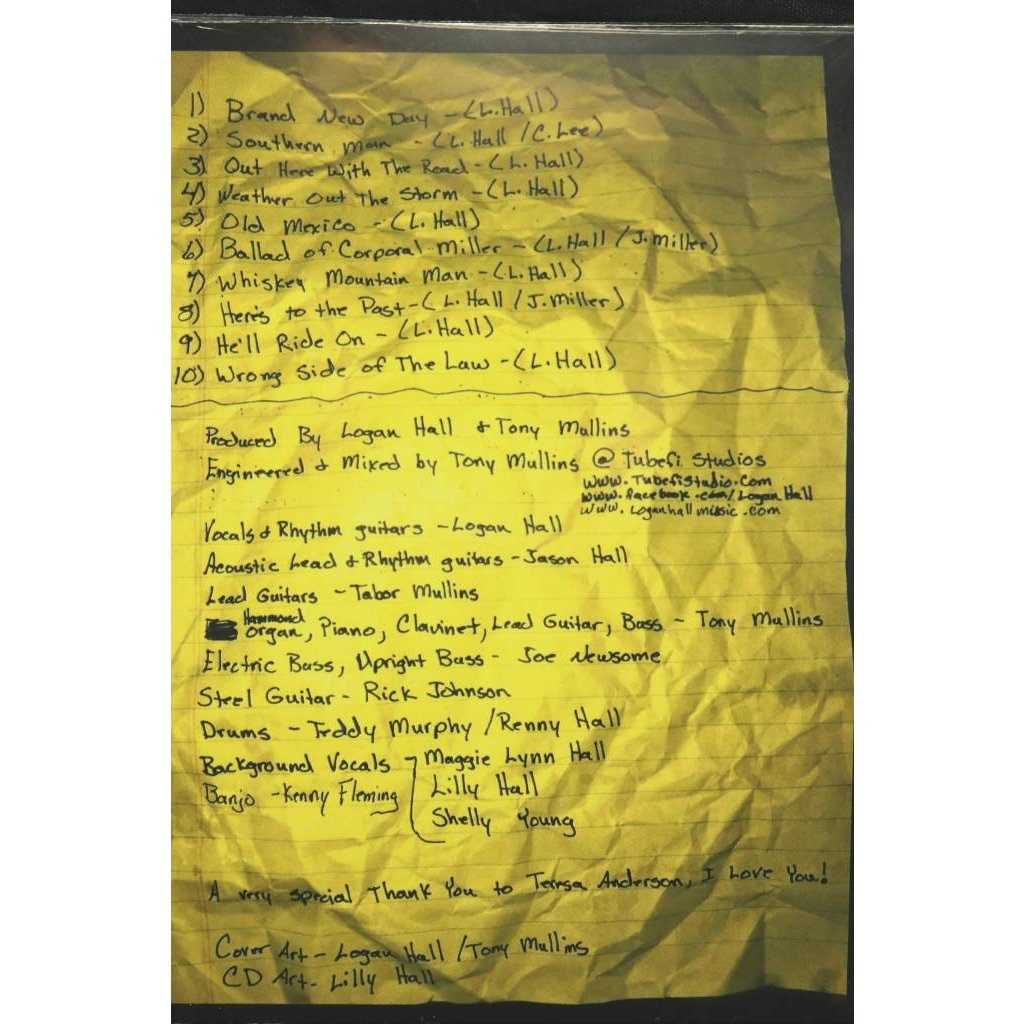 1) Brand New Day - (L. Hall)
2) Southern Man - (L. Hall / C. Lee)
3) Out Here With The Road - (L. Hall)
4) Weather Out The Storm - (L. Hall)
5) Old Mexico - (L. Hall)
6) Ballad of Corporal Miller - (L. Hall / J. Miller)
7) Whiskey Mountain Man - (L. Hall)
8) Here's to the Past - (L. Hall / J. Miller)
9) He'll Ride On - (L. Hall)
10) Wrong Side of The Law - (L. Hall)
Produced By Logan Hall & Tony Mullins
Engineered & Mixed by Tony Mullins @ Tubefi Studios
www.TubefiStudio.com
www.facebook.com/Logan Hall
www.loganhallmusic.com
Vocals & Rhythm guitars - Logan Hall
Acoustic Lead & Rhythm guitars - Jason Hall
Lead Guitars - Tabor Mullins
Hammond organ, Piano, Clavinet, Lead Guitar, Bass - Tony Mullins
Electric Bass, Upright Bass - Joe Newsome
Steel Guitar - Rick Johnson
Drums - Teddy Murphy / Renny Hall
Background Vocals - Maggie Lynn Hall
Lilly Hall
Shelly Young
Banjo - Kenny Fleming
A very special Thank You to Teresa Anderson, I Love You!
Cover Art - Logan Hall / Tony Mullins
CD Art - Lilly Hall